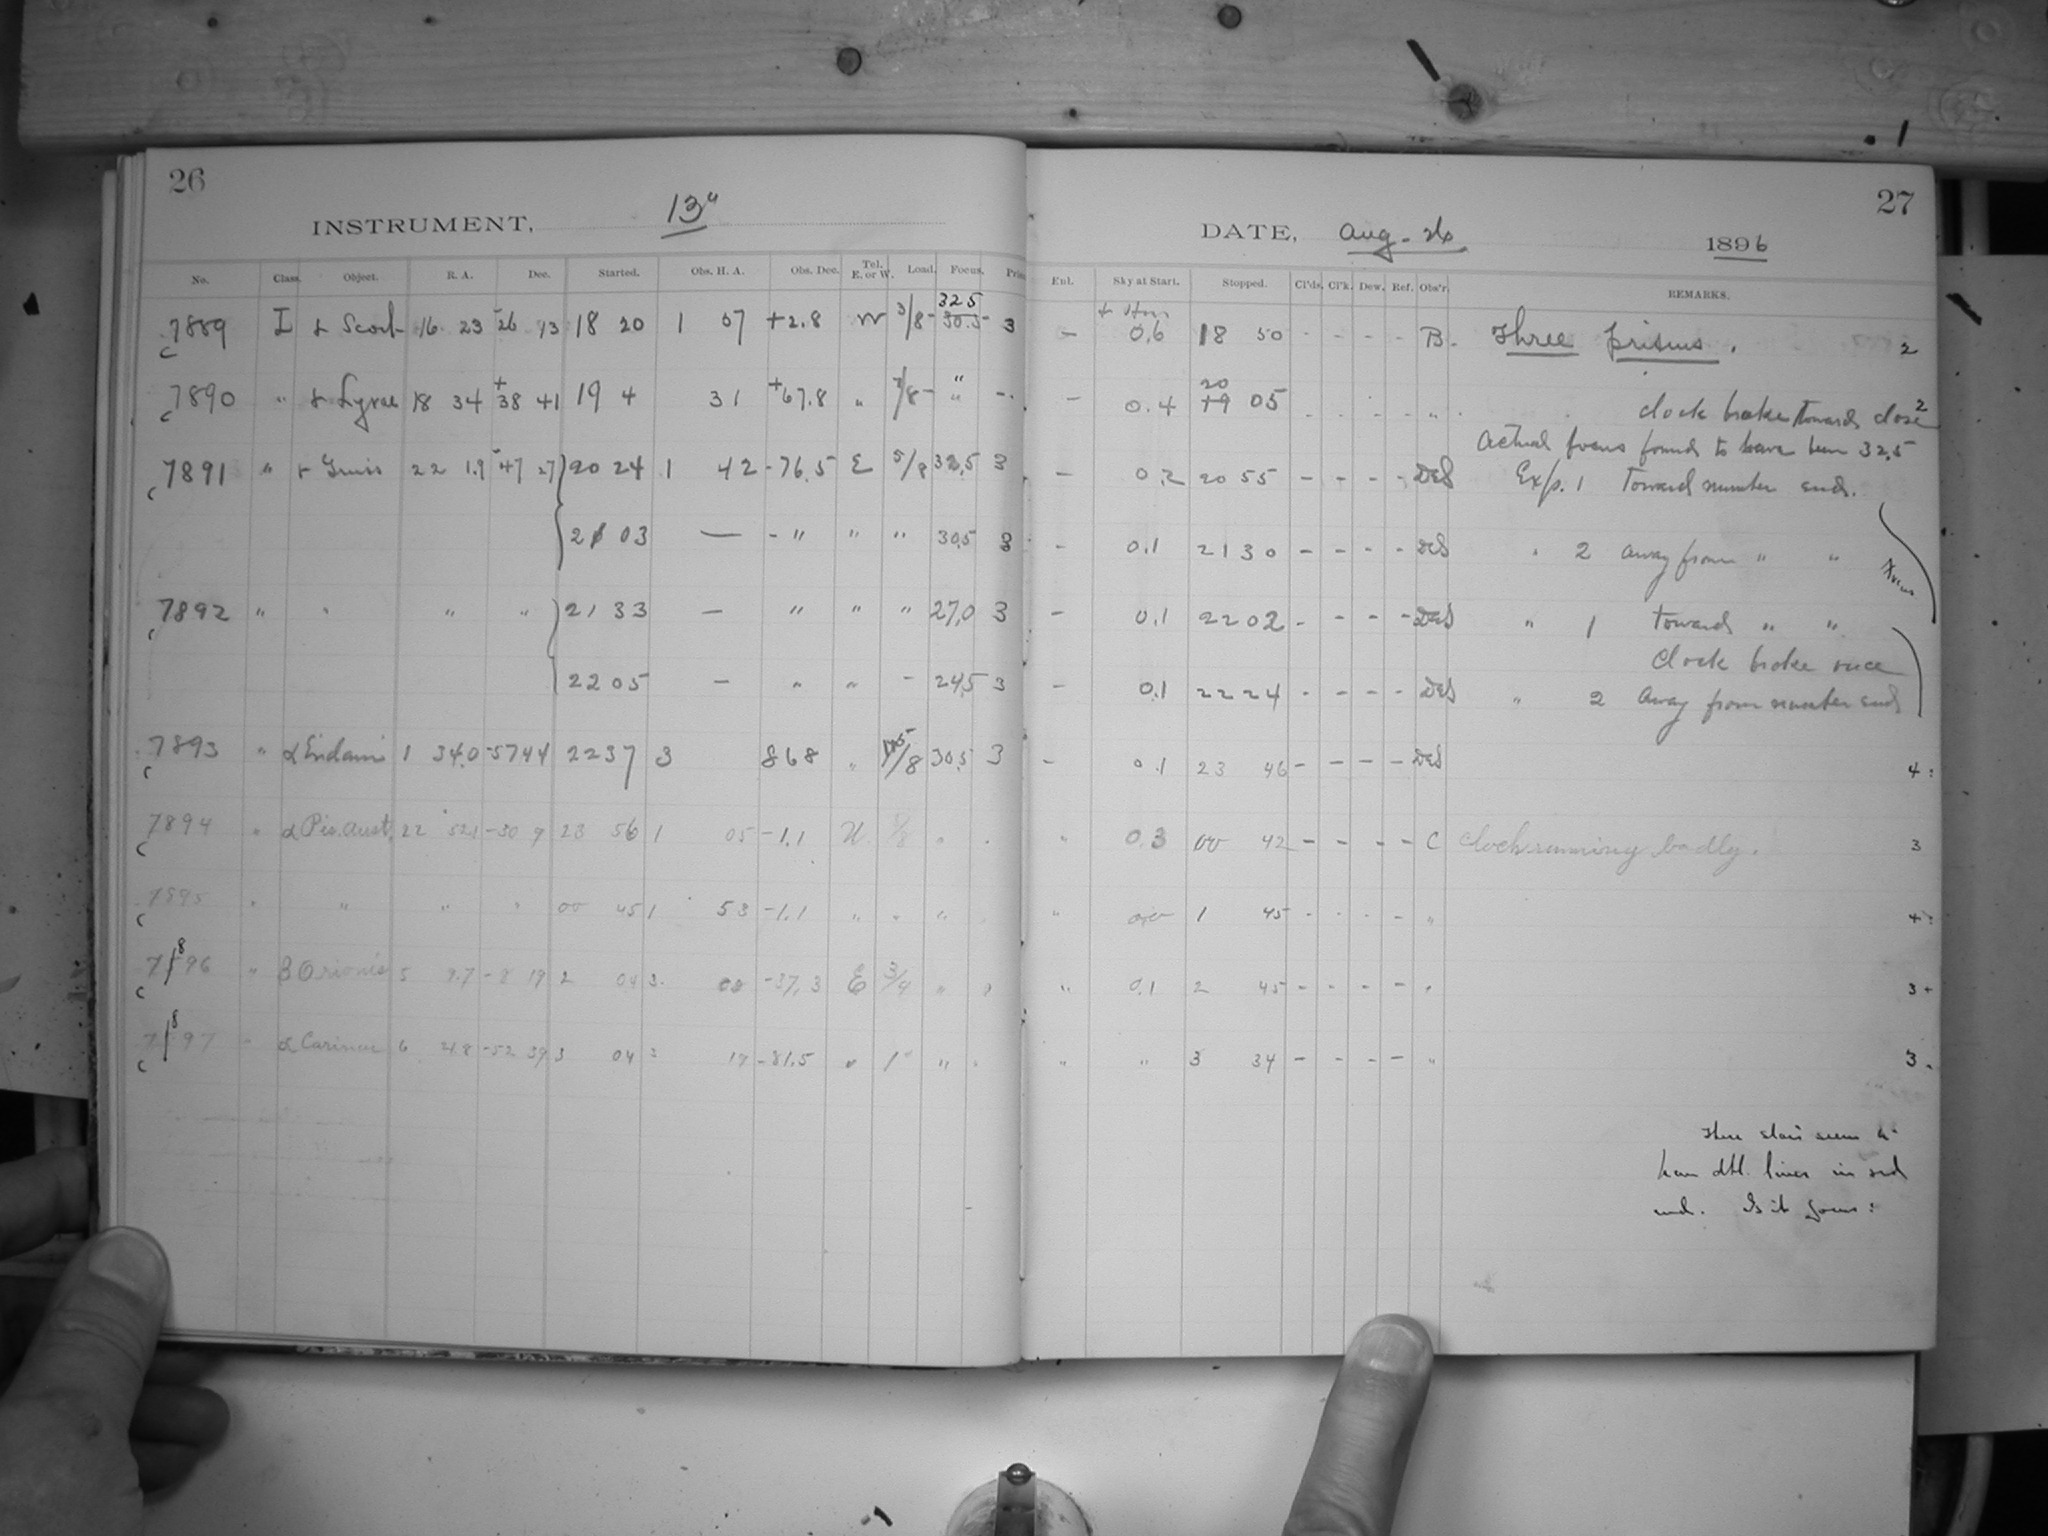 26
INSTRUMENT, 13"
No. Class. Object. R. A. Dec. Started. Obs. H. A. Obs. Dec. Tel. E. or W. Load. Focus.
7889 I α Scor 16 23 -26 13 18 20 1 57 +2.8 W 3/8- 32.5 30.5 3
7890 " α Lyrae 18 34 +38 41 19 4 31 +67.8 " 7/8- " "
7891 " α Gruis 22 1.9 -47 27 20 24 1 42 -76.5 E 5/8 32.5 3
21 03 — - " " " 30.5 3
7892 " " " " 21 33 — " " " 27.0 3
22 05 — " " - 24.5 3
7893 " α Eridani 1 34.0 -57 44 22 37 3 868 " /8 30.5 3
7894 " α Pis. Aust. 22 52.1 -30 9 23 56 1 05 -1.1 W 7/8 "
7895 " " " " 00 45 1 53 -1.1 " " "
7896 " β Orionis 5 9.7 -8 19 2 04 3 -37.3 E 3/4 " "
7897 " α Carinae 6 21.8 -52 39 3 04 2 17 -81.5 " 1- " "
27
DATE, Aug. 26 1896
Enl. Sky at Start. Stopped. Cl'ds. Cl'k. Dew. Ref. Obs'r. REMARKS.
— 0.6 18 50 - - - - B. Three prisms. 2
— 0.4 20 19 05 - - - - " clock broke towards close 2
Actual focus found to have been 32.5
— 0.2 20 55 - - - - DES Exp. 1 Toward number end.
- 0.1 21 30 - - - - DES " 2 away from " "
— 0.1 22 02 - - - - DES " 1 toward " "
Clock broke once
— 0.1 22 24 - - - - DES " 2 Away from number end
- 0.1 23 46 - - - - DES 4:
" 0.3 00 42 - - - - C Clock running badly. 3
" 0.0 1 45 - - - - " 4:
" 0.1 2 45 - - - - " 3+
" " 3 34 - - - - " 3.
These stars seem to
have dbl. lines in red
end. Is it focus?